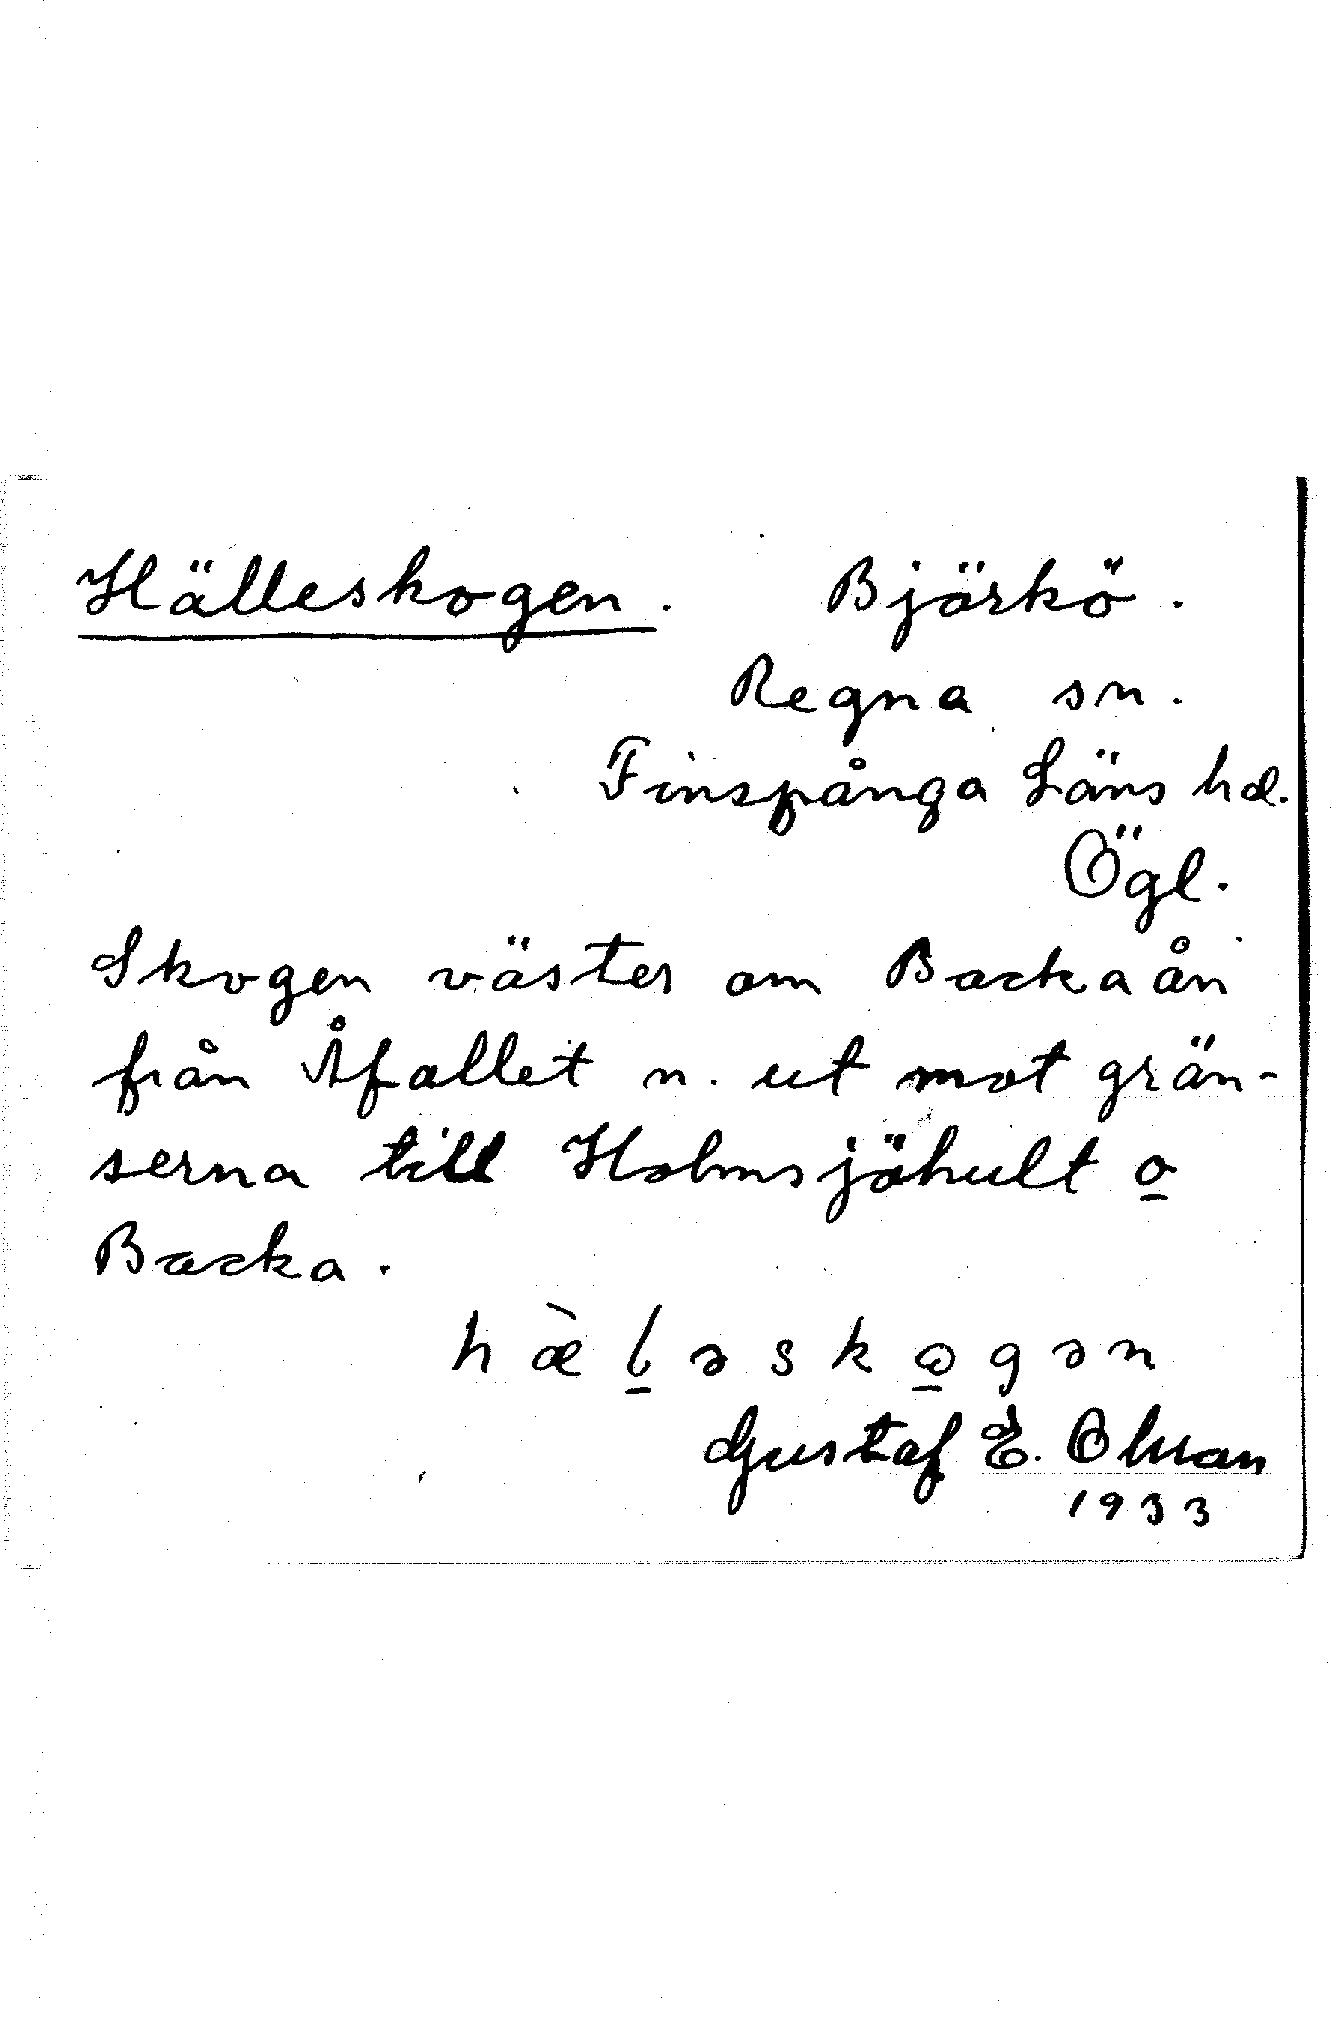 Hälleskogen. Björkö.
Regna sn.
Finspånga Läns hd.
Ögl.
Skogen väster om Backaån
från Åfallet n. ut mot grän-
serna till Holmsjöhult o
Backa.
hæ̀l̠əsko̠gən
Gustaf E. Olsson
1933